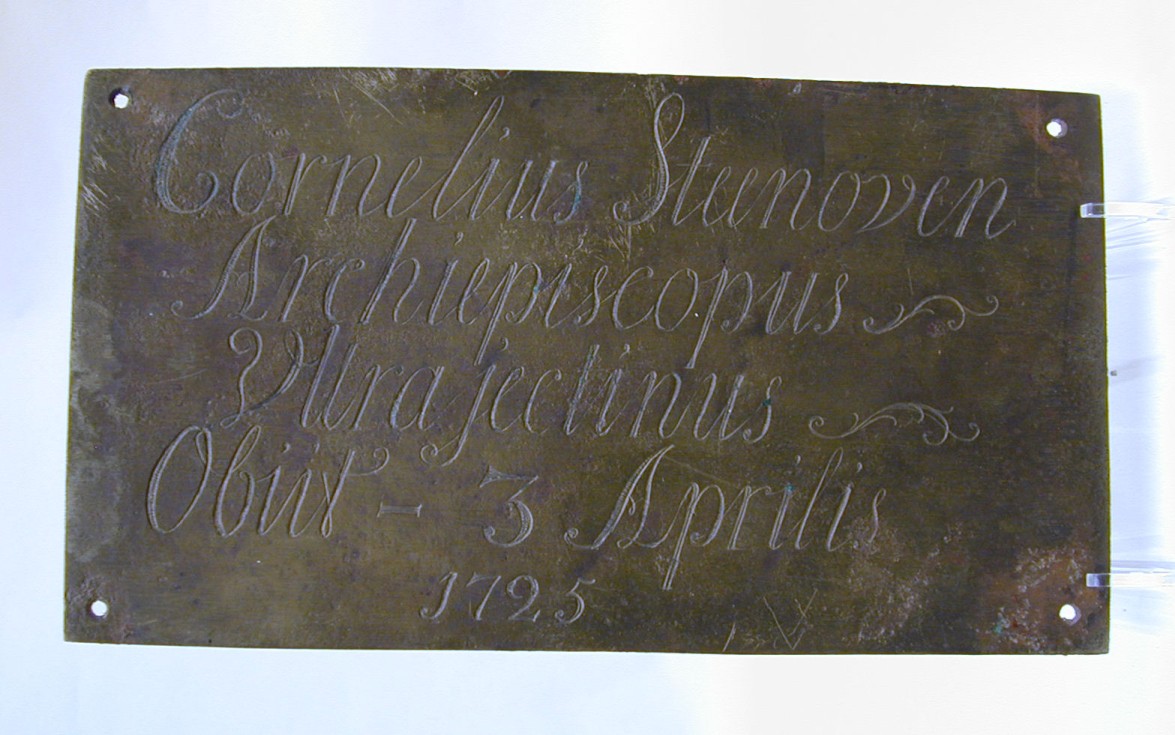 Cornelius Steenoven
Archiepiscopus
Ultrajectinus
Obiit - 3 Aprilis
1725